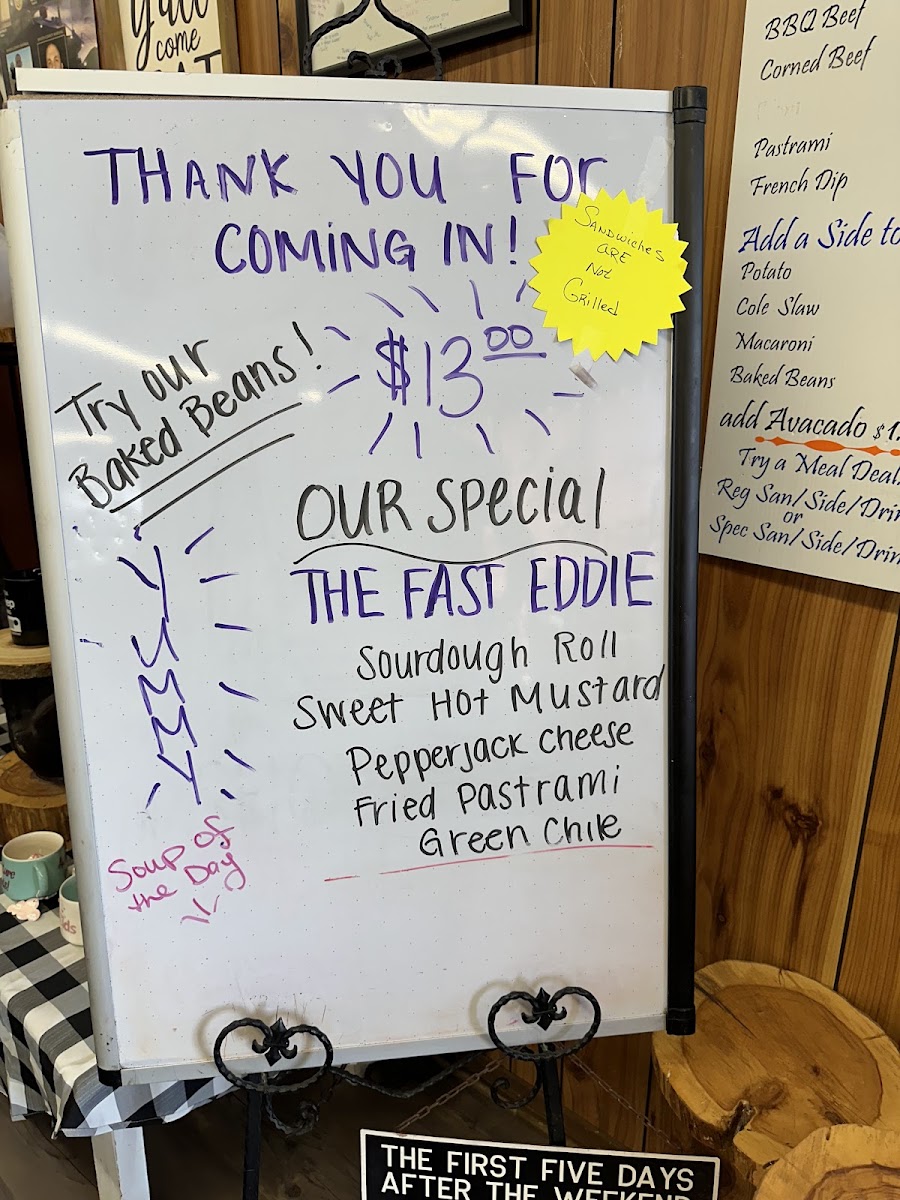 y'all
come
THANK YOU FOr
COMING IN!
SANDWICHES
ARE
Not
Grilled
$13.00
Try our
Baked Beans!
YUMMY
OUR Special
THE FAST EDDIE
Sourdough Roll
Sweet Hot Mustard
Pepperjack Cheese
Fried Pastrami
Green Chile
Soup of
the Day
BBQ Beef
Corned Beef
Pastrami
French Dip
Add a Side to
Potato
Cole Slaw
Macaroni
Baked Beans
add Avacado $1.
Try a Meal Deal
Reg San/Side/Drin
or
Spec San/Side/Drin
THE FIRST FIVE DAYS
AFTER THE WEEKEND